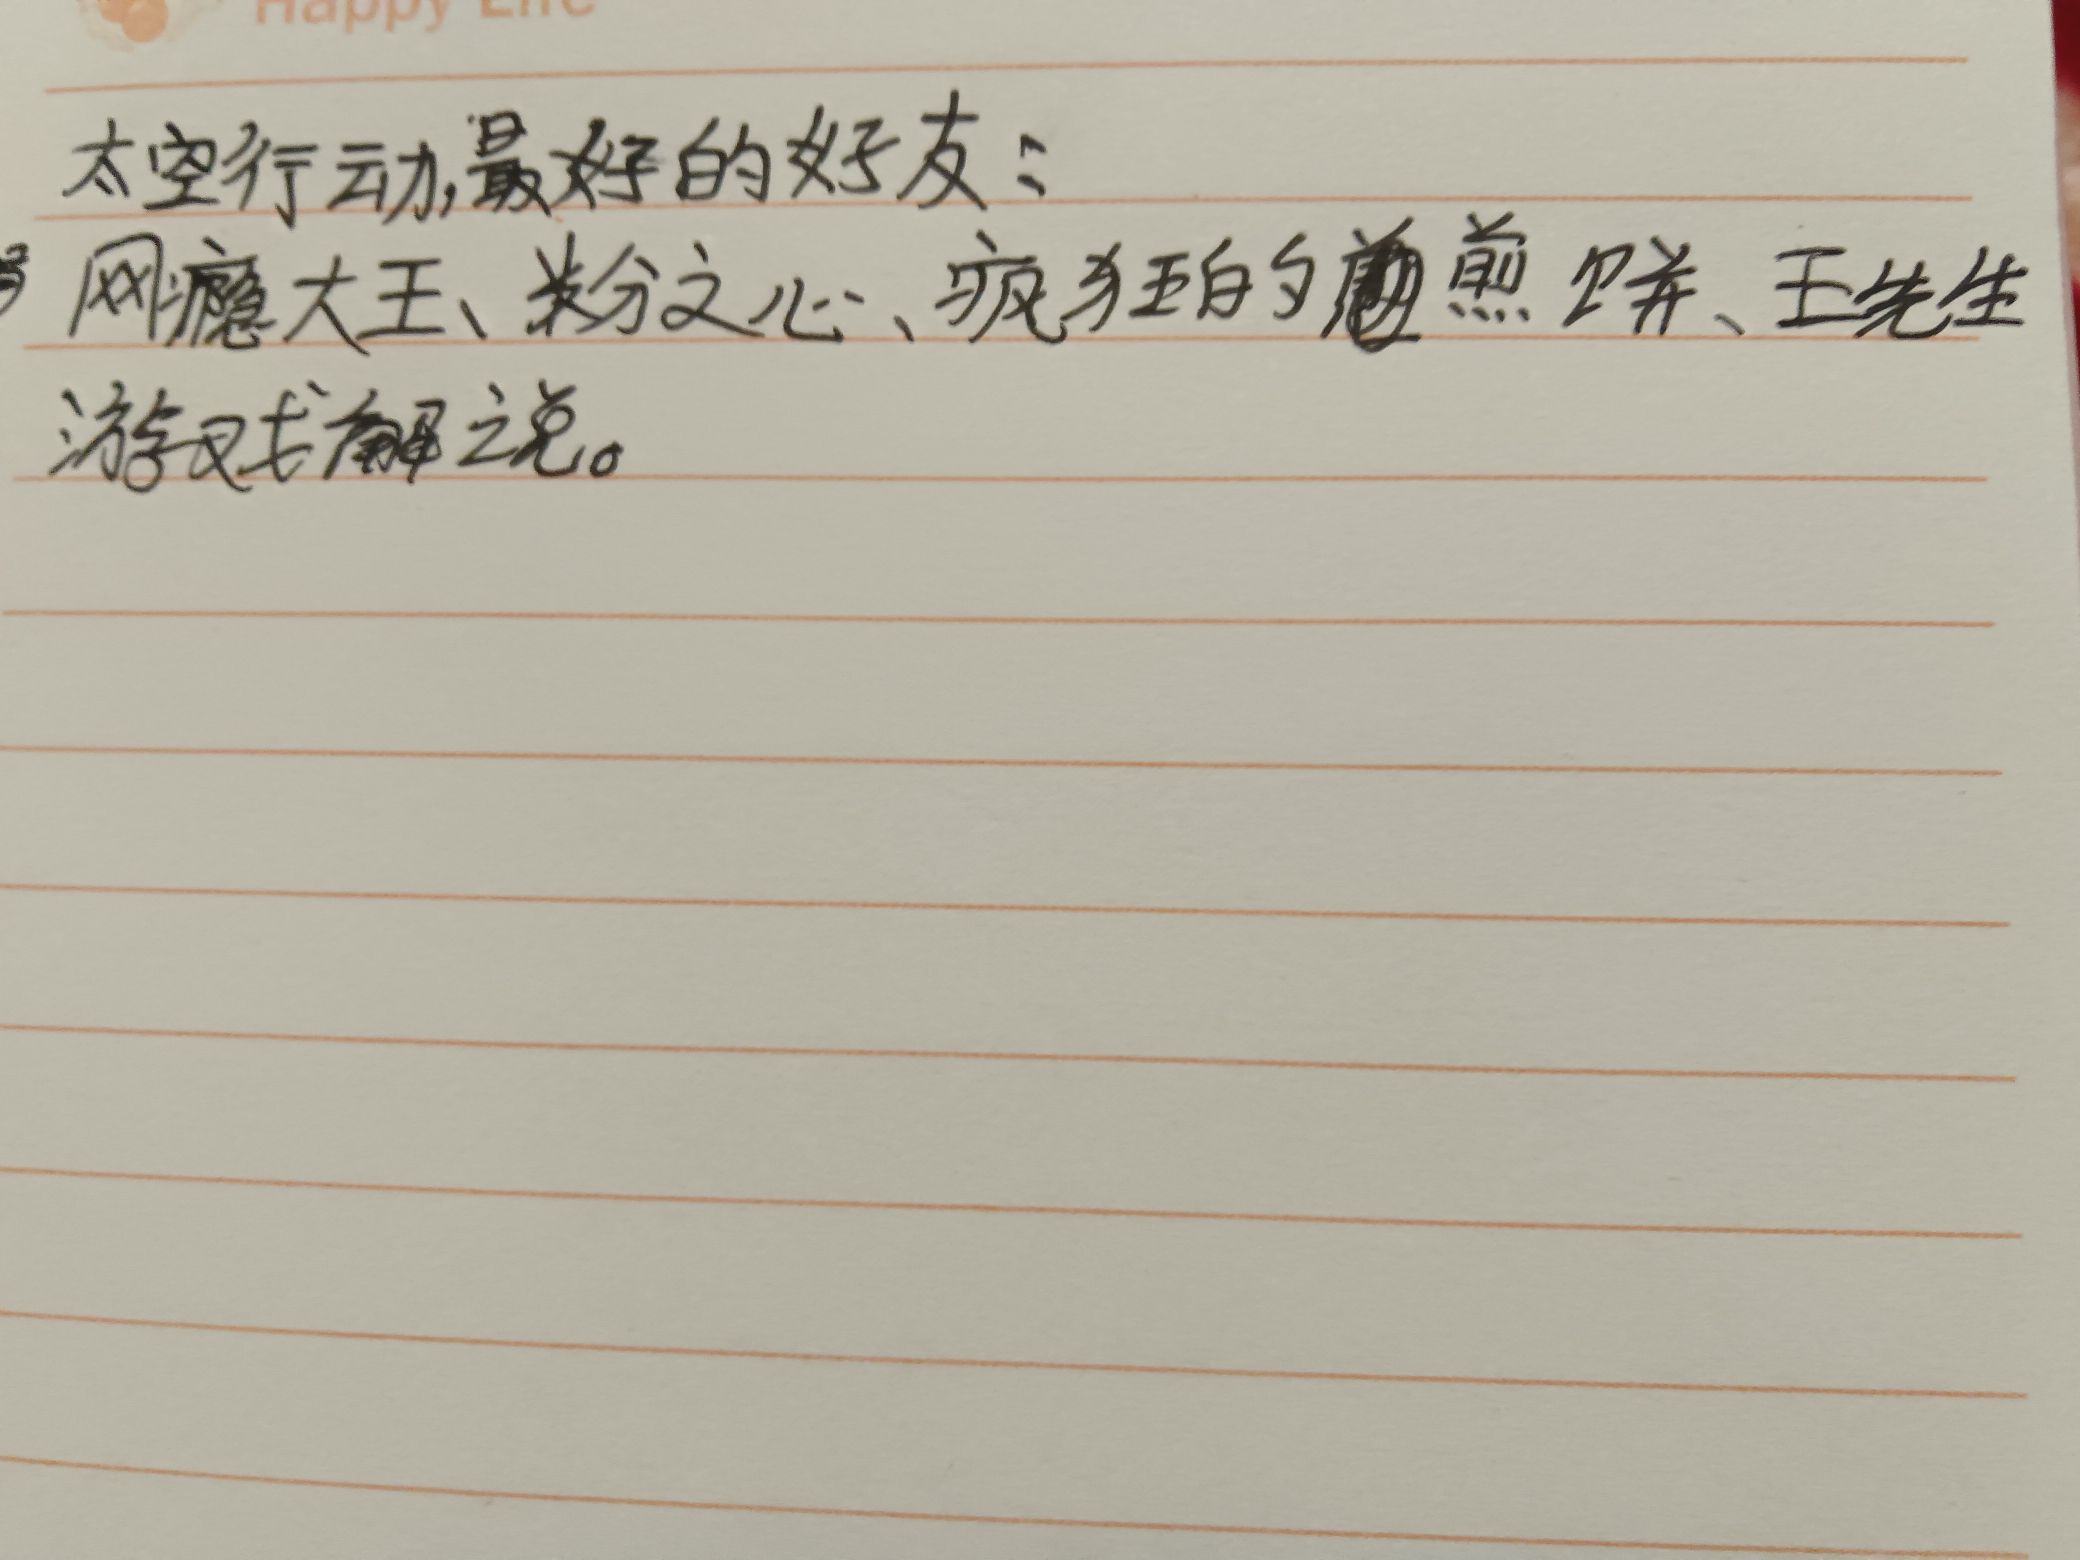 Happy Life
太空行动,最好的好友:
网瘾大王、粉文心、疯狂的煎饼、王先生
游戏解说。